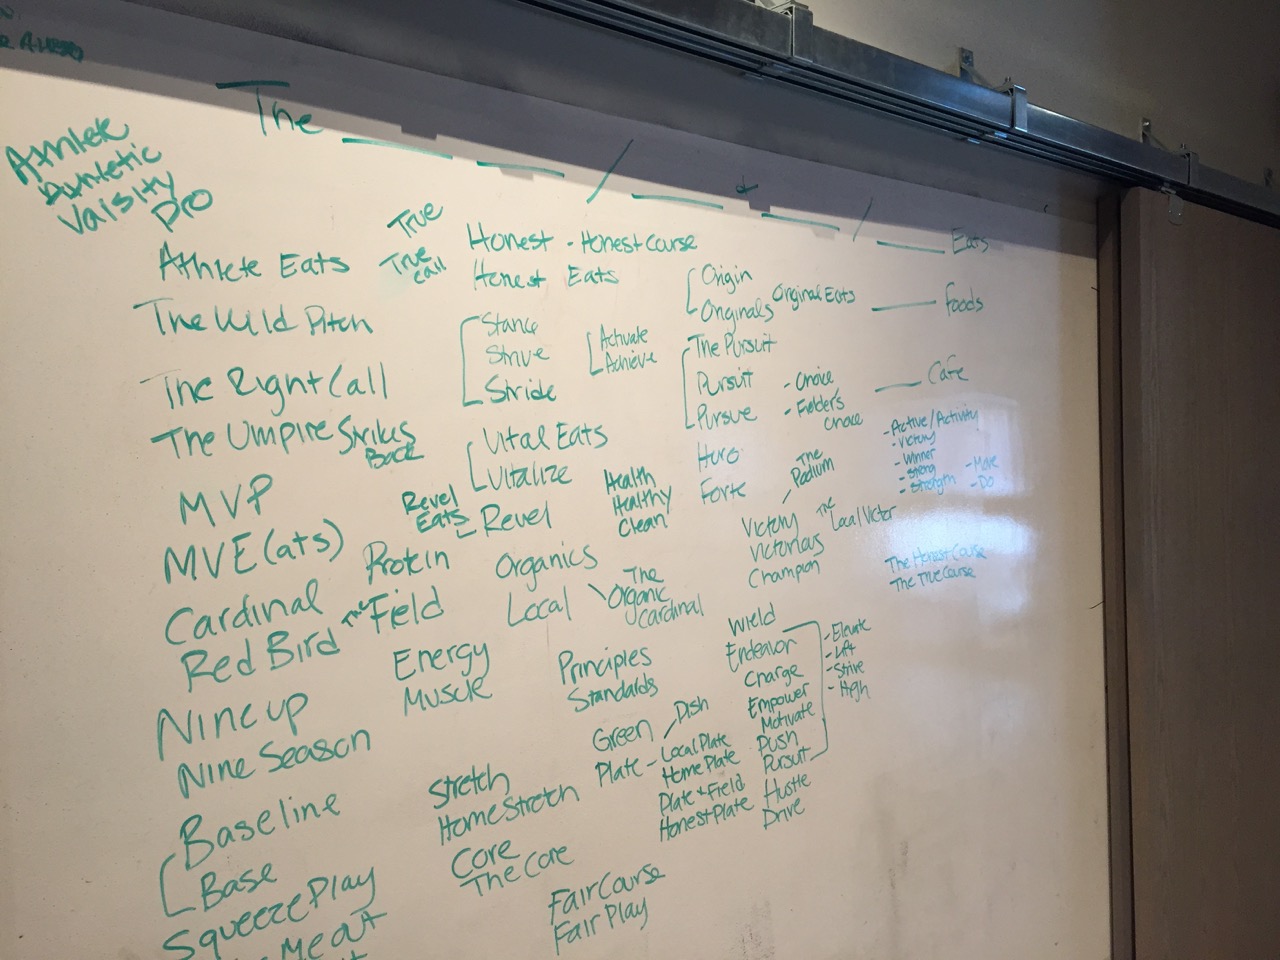 The ____ ____ / ____ & ____ / ____ Eats
____ Foods
____ Cafe
Athlete
Athletic
Vaisity
Pro
Athlete Eats
The Wild Pitch
The Right Call
The Umpire Strikes
Back
MVP
MVE(ats)
Cardinal
Red Bird
Nine up
Nine Season
Baseline
Base
Squeeze Play
me out
True
True
call
Revel
Eats
Protein
The Field
Energy
Muscle
Stretch
Home Stretch
Core
The Core
Honest - Honest Course
Honest Eats
Stance
Strive
Stride
Activate
Achieve
Vital Eats
Vitalize
Revel
Health
Healthy
Clean
Organics
Local
The
Organic
Cardinal
Principles
Standards
Green
Dish
Plate - Local Plate
Home Plate
Plate + Field
Honest Plate
Fair Course
Fair Play
Origin
Originals
Orginal Eats
The Pursuit
Pursuit
Pursue
- Choice
- Fielder's
Choice
Hero
Forte
The
Podium
Victory
Victorious
Champion
The Local Victor
Wield
Endeavor
Charge
Empower
Motivate
Push
Pursuit
Hustle
Drive
- Elevate
- Lift
- Strive
- High
- Active/Activity
- Victory
- Winner
- Strong
- Strength
- Move
- Do
The Honest Course
The True Course